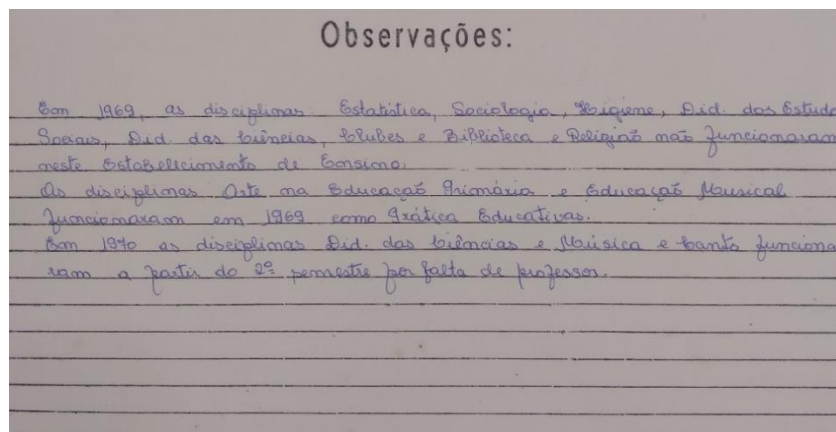 Observações:
Em 1969, as disciplinas Estatística, Sociologia, Higiene, Did. dos Estudo
Sociais, Did. das Ciências, Clubes e Biblioteca e Religião não funcionaram
neste Estabelecimento de Ensino.
As disciplinas Arte na Educação Primária e Educação Musical
funcionaram em 1969 como Prática Educativas.
Em 1970 as disciplinas Did. das Ciências e Música e Canto funciona
ram a partir do 2º semestre por falta de professor.